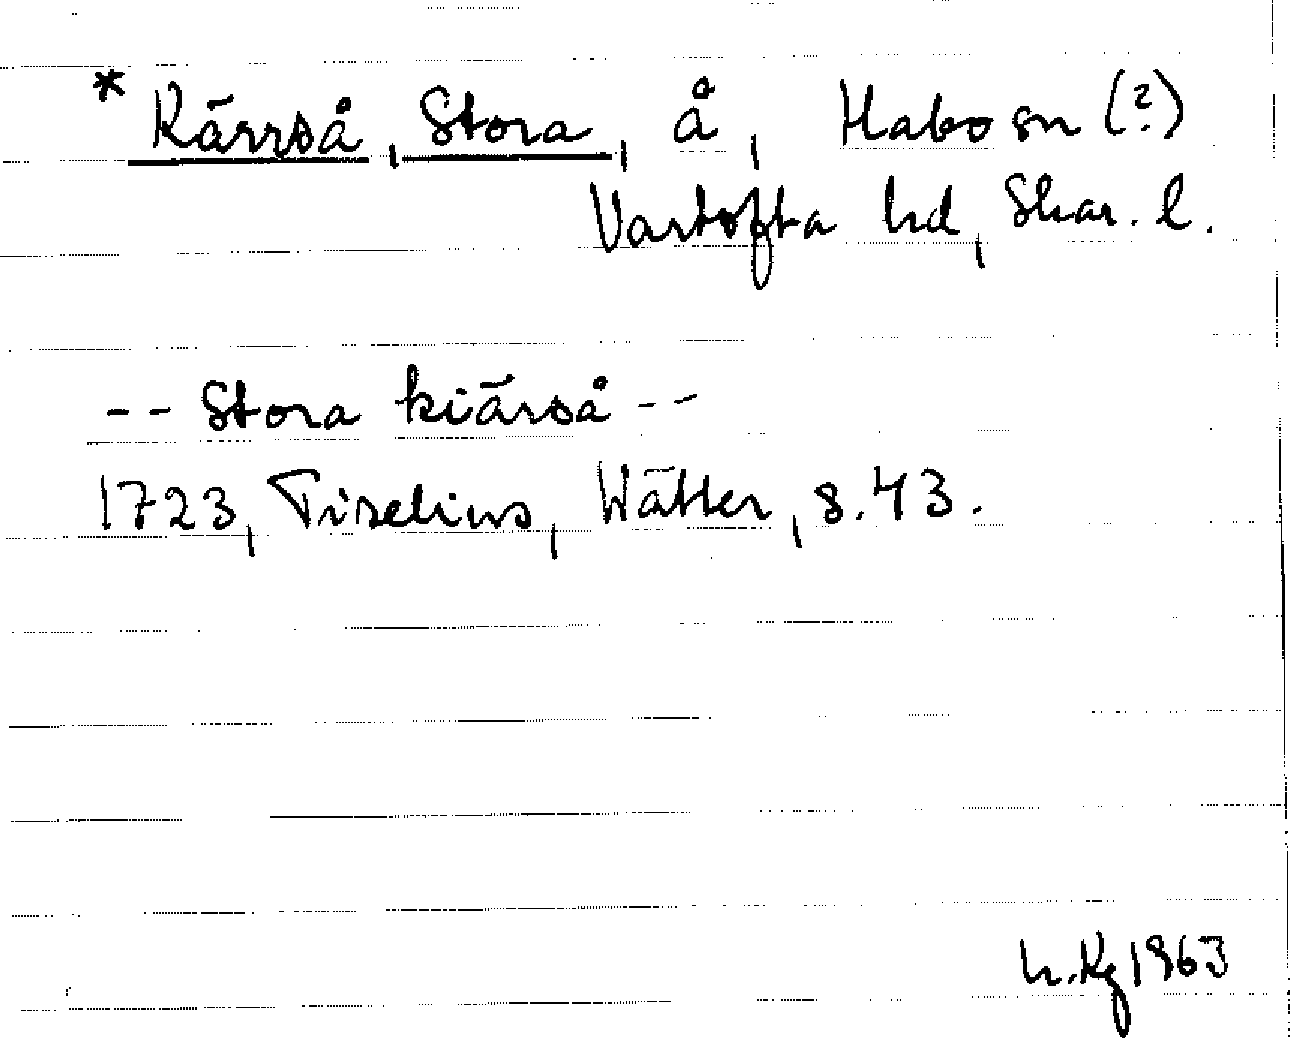 * Kärrså, Stora, å, Habo sn (?)
Vartofta hd, Skar. l.
-- Stora kiärså --
1723, Tiselius, Wätter, s. 43.
h.Kg 1963